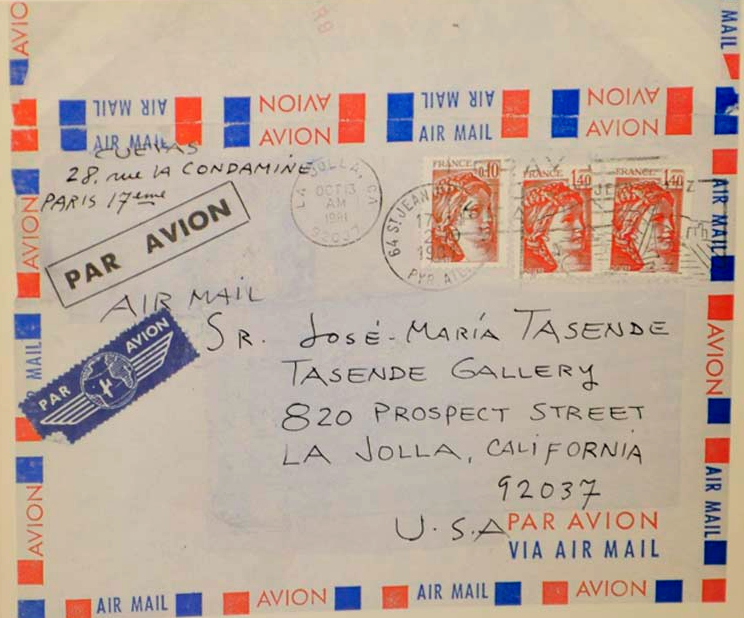 AVION
MAIL
AIR MAIL
AVION
AIR MAIL
AVION
AIR MAIL
AVION
AIR MAIL
AVION
CUEVAS
28, rue LA CONDAMINE
PARIS 17eme
LA JOLLA, CA
OCT 13
AM
1981
92037
64 ST JEAN
FRANCE
0,10
FRANCE
1,40
FRANCE
1,40
PAR AVION
AIR MAIL
PAR AVION
SR. JOSÉ-MARÍA TASENDE
TASENDE GALLERY
820 PROSPECT STREET
LA JOLLA, CALIFORNIA
92037
U.S.A
PAR AVION
VIA AIR MAIL
AVION
MAIL
AVION
AIR MAIL
AVION
AIR MAIL
AIR MAIL
AVION
AIR MAIL
AVION